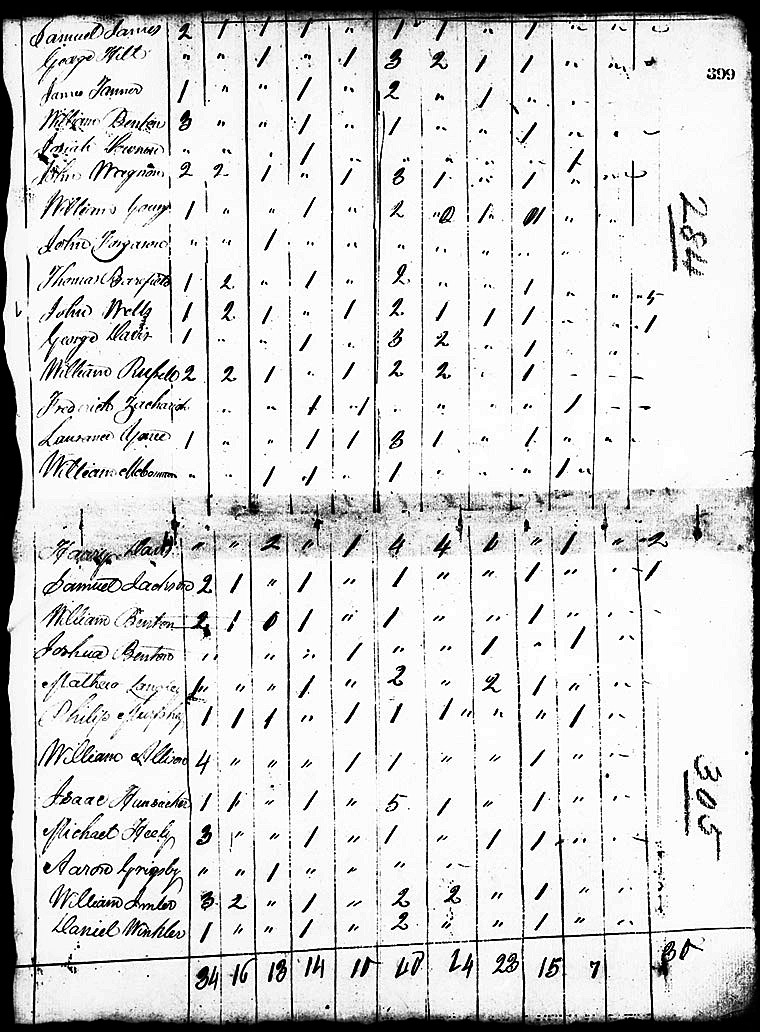 Samuel James 2 1 1 1 " 1 1 " 1 " " "
George Hilt " " 1 " 1 3 2 1 1 " " "
399
James Tanner 1 " " 1 " 2 " 1 " " "
William Benton 3 " " 1 " 1 " " 1 " " "
Josiah " " " 1 " " " " " 1 " "
John 2 2 1 " 1 3 1 " 1 " " "
William Young 1 " " 1 " 2 " 1 " "
284
John Ferguson " " 1 " " " " " " " "
Thomas Barefield 1 2 " 1 " 2 " " 1 " "
John Wells 1 2 1 " 1 2 1 1 1 " " 5
George Davis 1 " " 1 " 3 2 " 1 " " 1
William Russell 2 2 1 " 1 2 2 " 1 " " "
Frederick Zachariah " " " 1 1 " " " " 1 " "
Laurance 1 " " 1 1 3 1 " 1 " " "
William " " 1 1 " 1 " " " 1 "
Harry Davis " " 2 " 1 4 4 1 " 1 " 2
Samuel Jackson 2 1 " 1 " 1 " " 1 " " 1
William Benton 2 1 1 " 1 " " 1 " "
Joshua Benton " " " " 1 " " 1 " 1 " "
Mathew Langley " " 1 " 2 " 2 1 " "
Philip Murphy 1 1 1 " 1 1 1 " " 1 "
William Allison 4 " " " 1 1 " " 1 " "
305
Isaac Hunsacker 1 1 " 1 " 5 1 " 1 " "
Michael Heely 3 " " 1 " 1 " 1 1 " "
Aaron Grigsby " " 1 " " " "
William Imler 3 2 " 1 " 2 2 " 1 " "
Daniel Winkler 1 " " 1 " 2 " " 1 " "
34 16 13 14 10 40 24 23 15 7 30